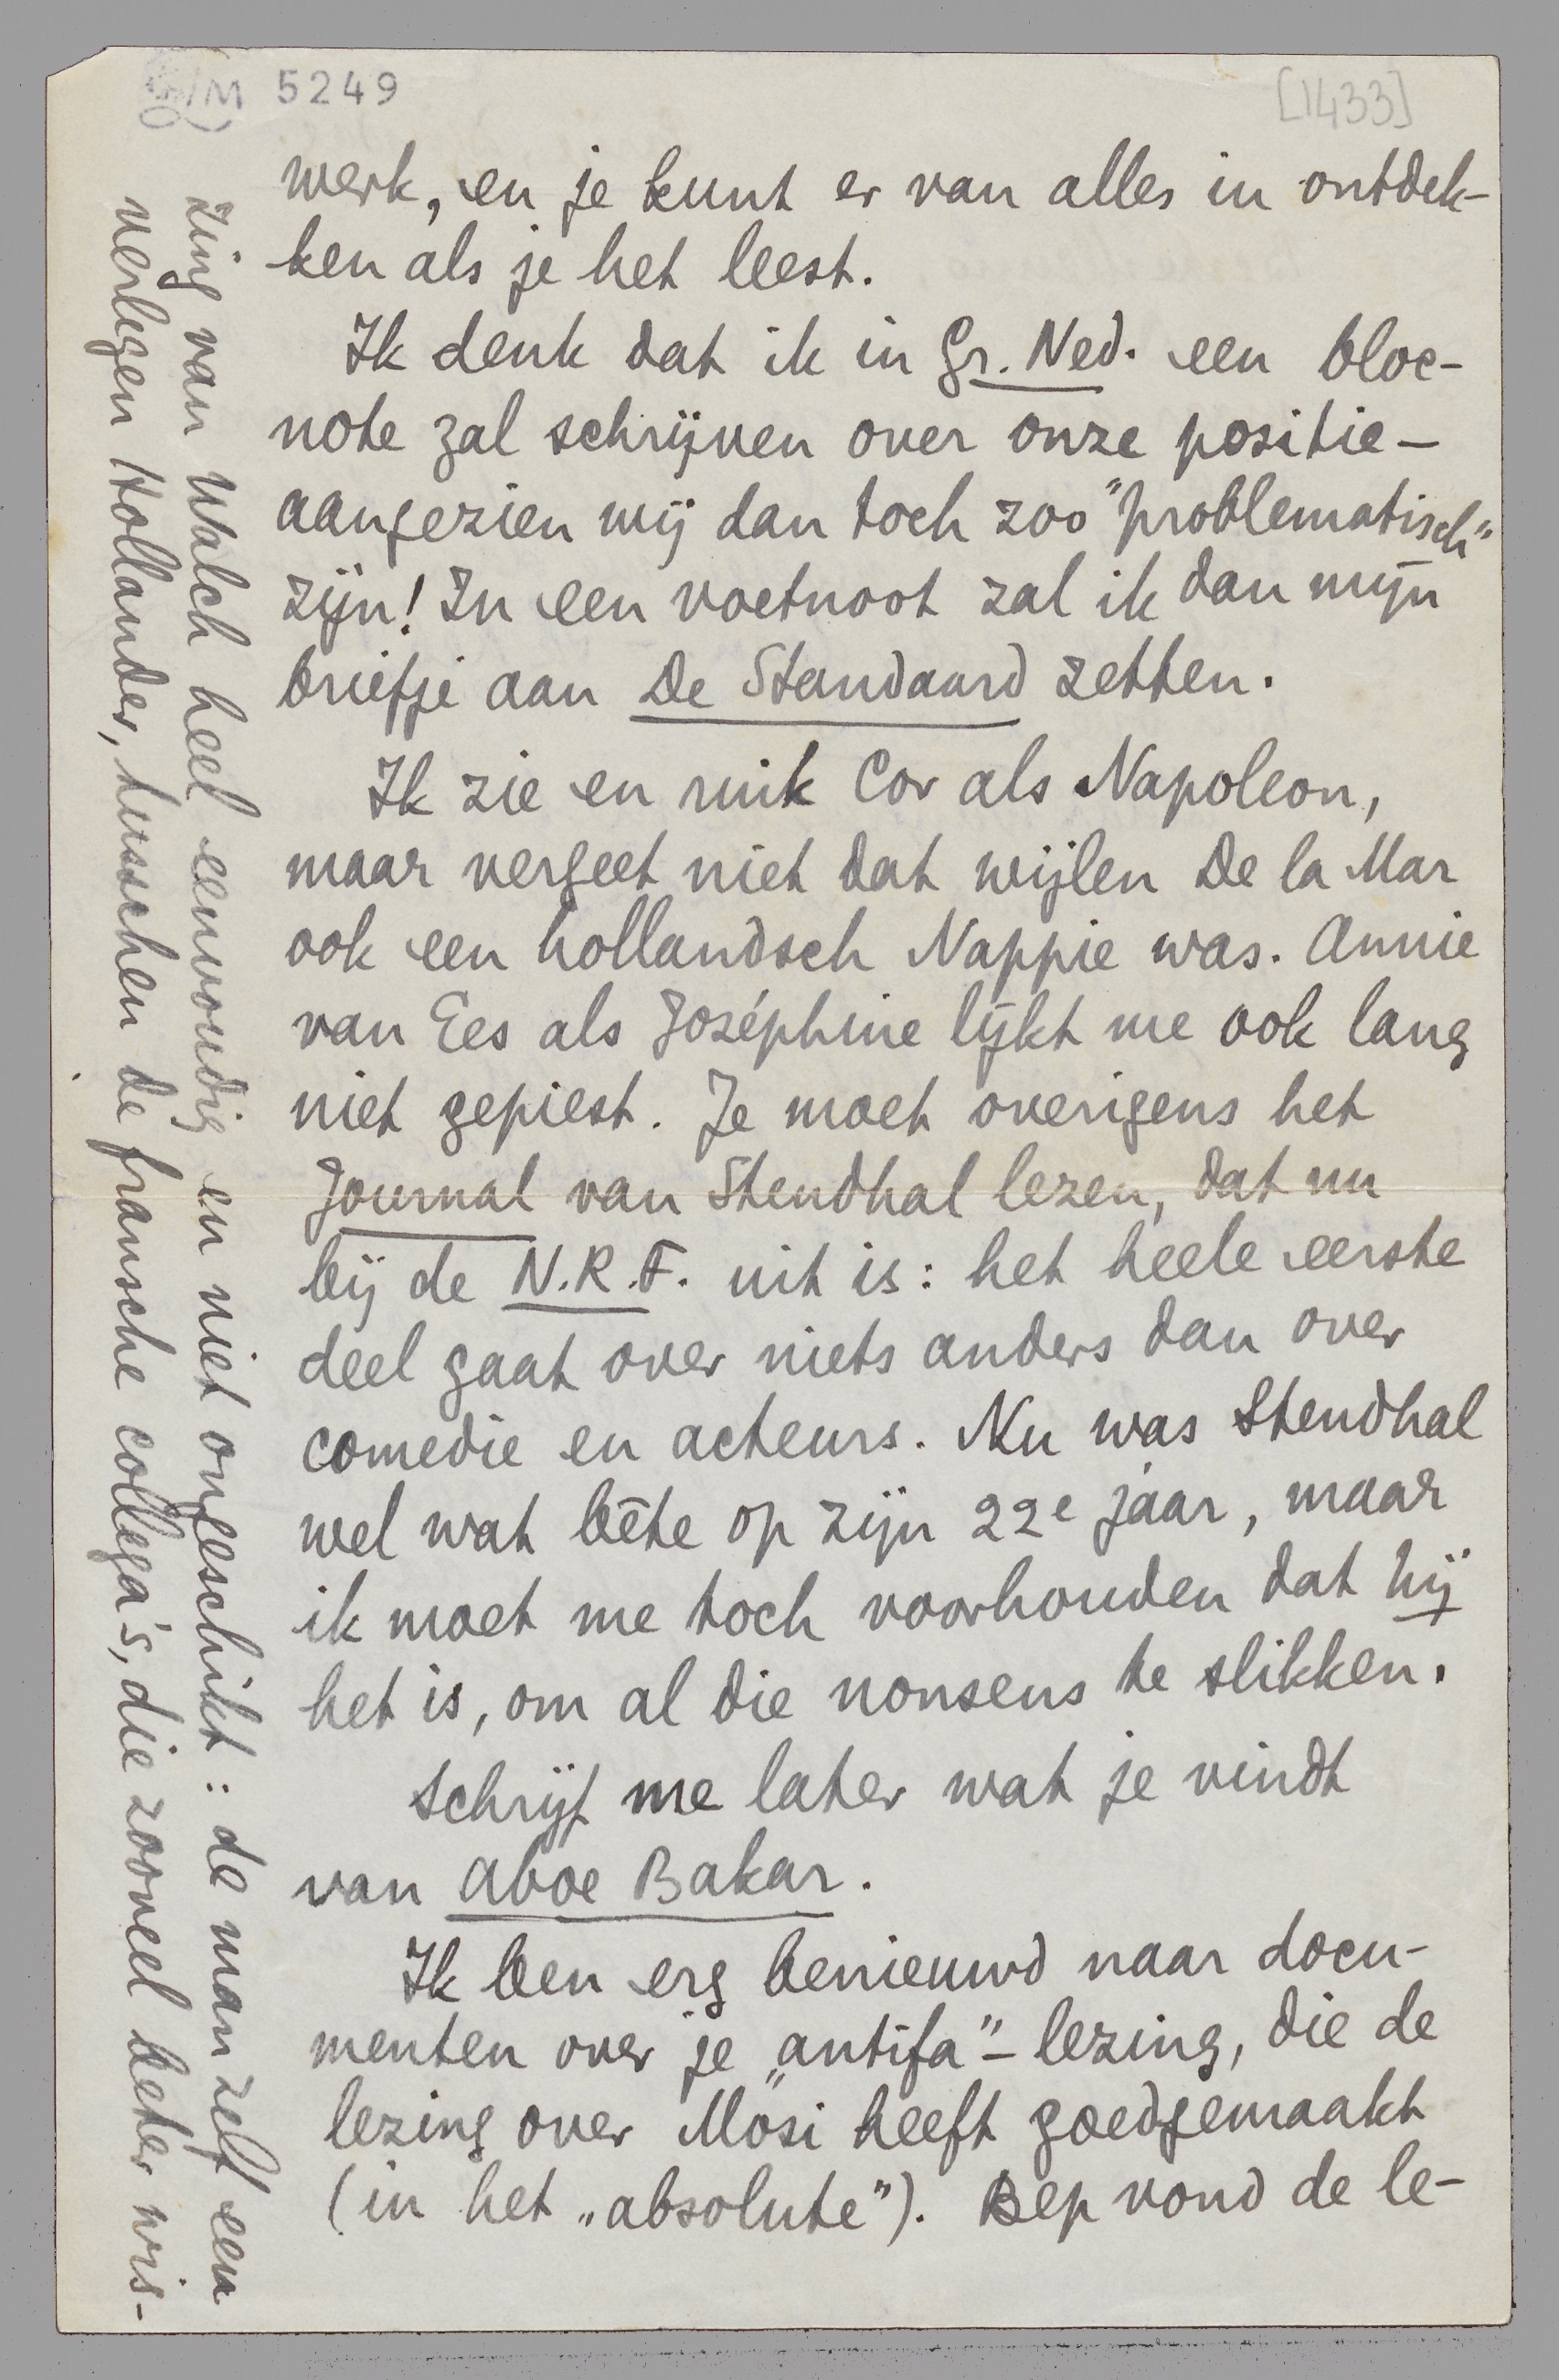 LM 5249
[1433]
werk, en je kunt er van alles in ontdek-
ken als je het leest.
Ik denk dat ik in Gr. Ned. een bloc-
note zal schrijven over onze positie –
aangezien wij dan toch zoo "problematisch"
zijn! In een voetnoot zal ik dan mijn
briefje aan De Standaard zetten.
Ik zie en ruik Cor als Napoleon,
maar vergeet niet dat wijlen De la Mar
ook een hollandsch Nappie was. Annie
van Ees als Joséphine lijkt me ook lang
niet gepiest. Je moet overigens het
Journal van Stendhal lezen, dat nu
bij de N.R.F. uit is: het heele eerste
deel gaat over niets anders dan over
comedie en acteurs. Nu was Stendhal
wel wat bête op zijn 22e jaar, maar
ik moet me toch voorhouden dat hij
het is, om al die nonsens te slikken.
Schrijf me later wat je vindt
van Aboe Bakar.
Ik ben erg benieuwd naar docu-
menten over je „antifa"-lezing, die de
lezing over Mösi heeft goedgemaakt
(in het „absolute"). Bep vond de le-
zing van Walch heel eenvoudig en niet ongeschikt: de man zelf een
verlegen Hollander, tusschen de fransche collega's, die zooveel beter wis-